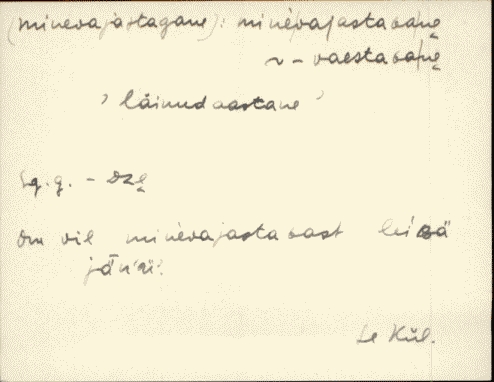 (minevajastagane): minèvajastaᴅanę
~ -vaestaᴅanę
' läinudaastane '
Sg. g. - ᴅzę
Om vil minèvajastaᴅast leiʙä
jänʼüʼ.
Se Kül.